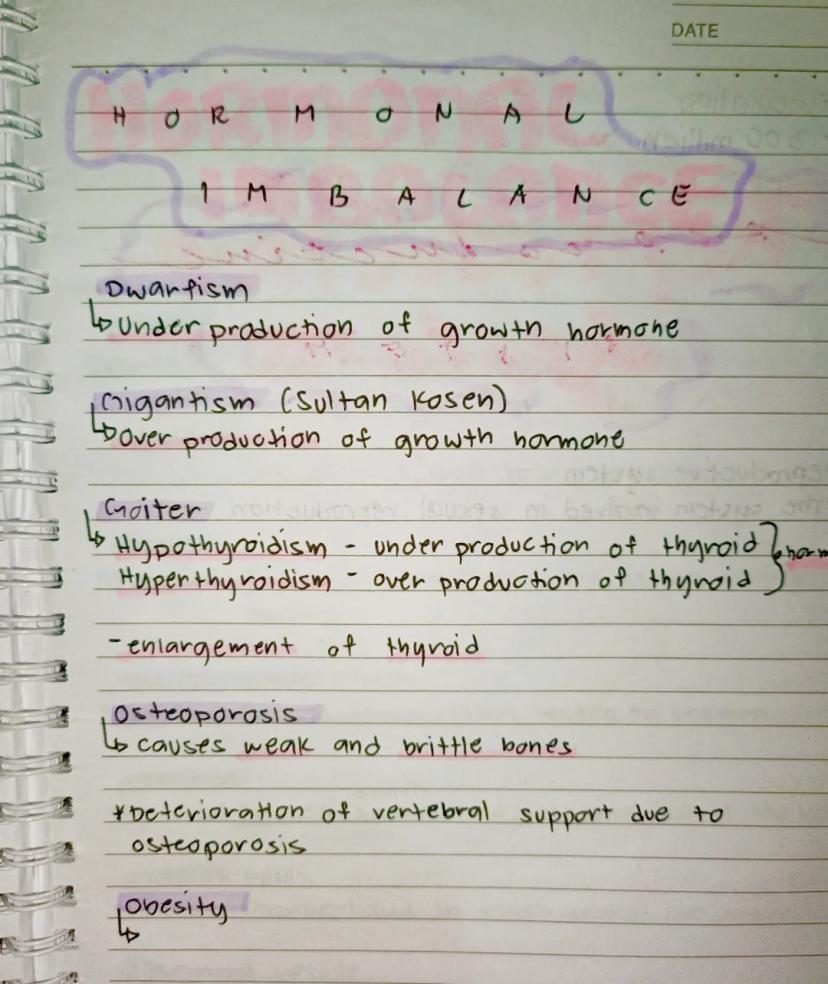 DATE
HORMONAL
IMBALANCE
Dwarfism
↳ Under production of growth hormone
Gigantism (Sultan Kosen)
↳ Over production of growth hormone
Goiter
↳ Hypothyroidism - under production of thyroid } horm
Hyperthyroidism - over production of thyroid
- enlargement of thyroid
Osteoporosis
↳ causes weak and brittle bones
*Deterioration of vertebral support due to
osteoporosis
Obesity
↳